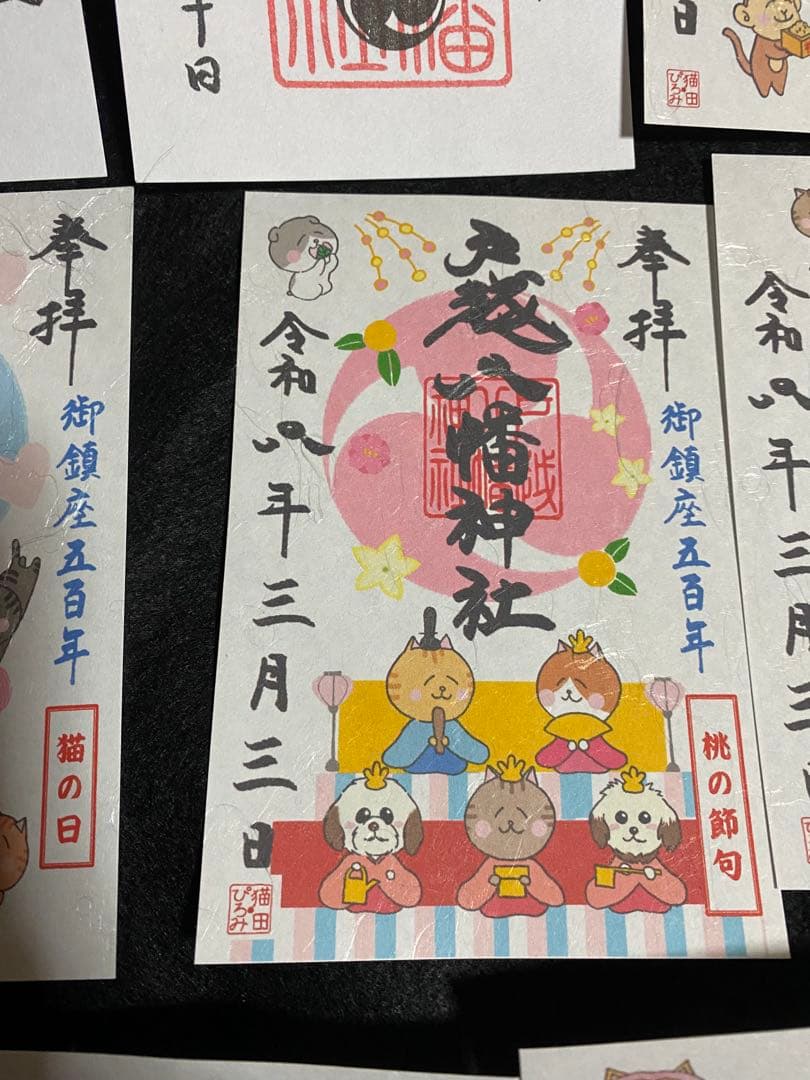 十日
幡
社
日
猫田
ぴろみ
奉拝
御鎮座五百年
猫の日
奉拝
御鎮座五百年
桃の節句
戸越八幡神社
戸越
八幡
神社
令和八年三月三日
猫田
ぴろみ
令和八年三月三